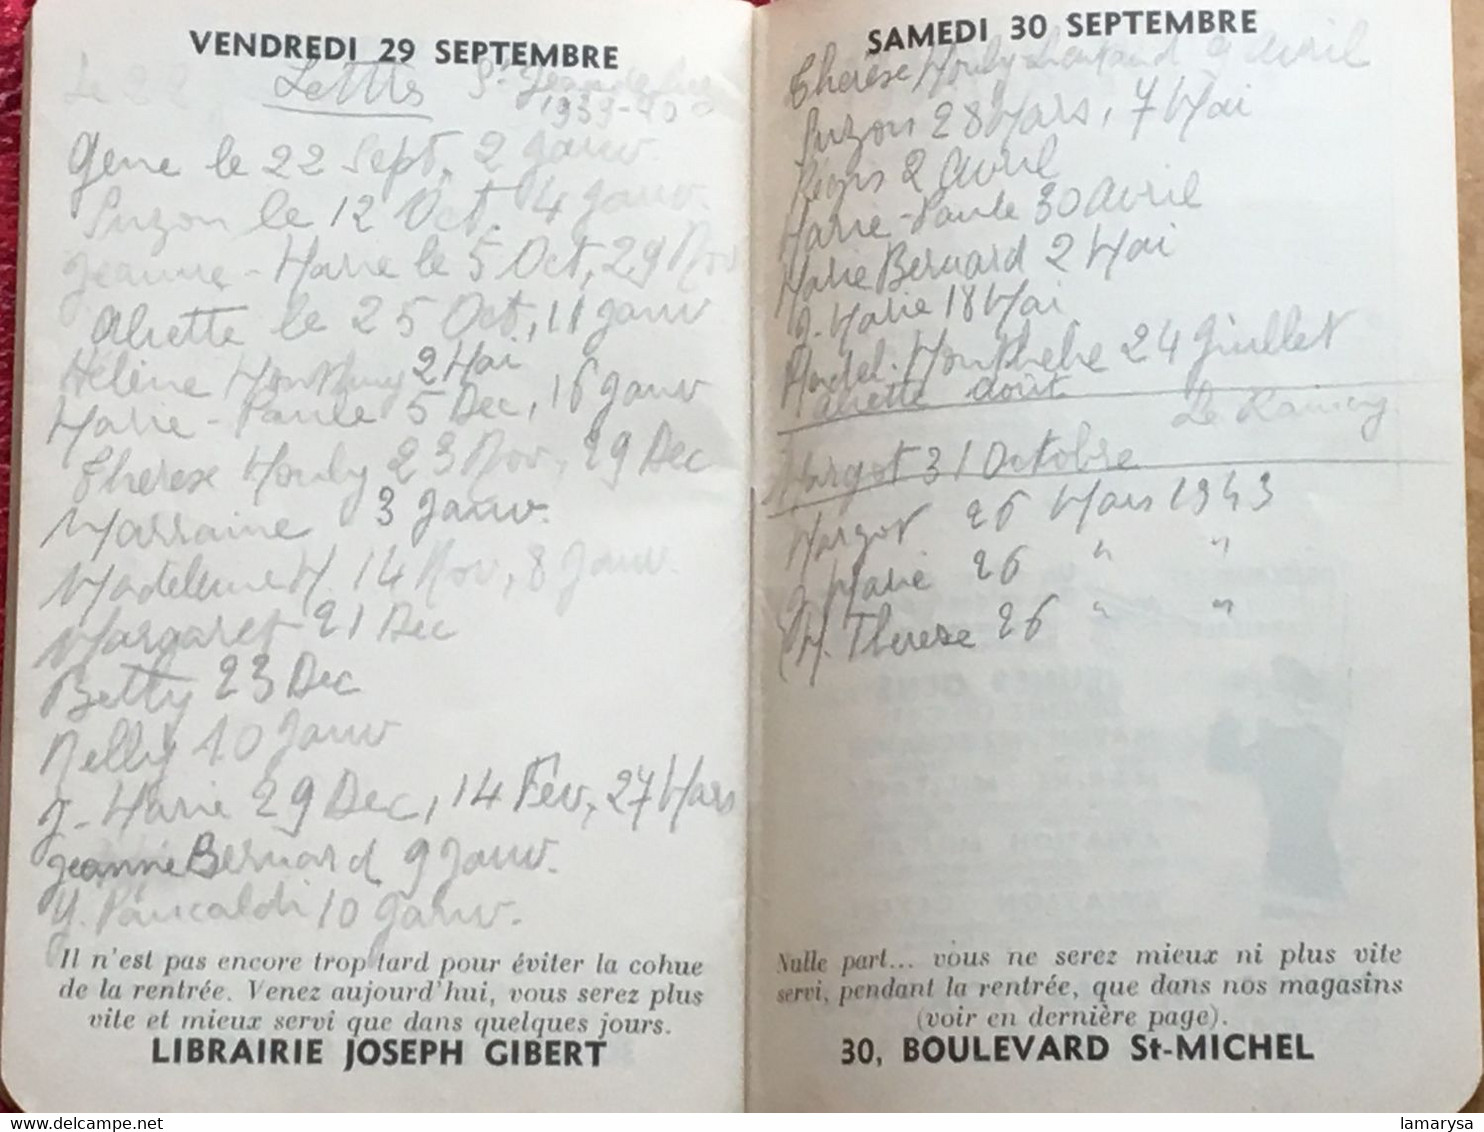 VENDREDI 29 SEPTEMBRE
Le 22 Lettres St Jean de Luz
1939-40
Gene le 22 Sept, 2 Janv.
Suzon le 12 Oct. 4 Janv.
Jeanne-Marie le 5 Oct, 29 Nov
Aliette le 25 Oct, 11 Janv
Hélène 2 Mai
Marie-Paule 5 Dec, 16 Janv
Therese Houly 23 Nov, 29 Dec
Marraine 3 Janv.
Madeleine H. 14 Nov, 8 Janv.
Margaret 21 Dec
Betty 23 Dec
Nelly 10 Janv
J-Marie 29 Dec, 14 Fév, 27 Mars
Jeanne Bernard 9 Janv.
Y. Pancaldi 10 Janv.
Il n'est pas encore trop tard pour éviter la cohue
de la rentrée. Venez aujourd'hui, vous serez plus
vite et mieux servi que dans quelques jours.
LIBRAIRIE JOSEPH GIBERT
SAMEDI 30 SEPTEMBRE
Therese Houly 9 Avril
Suzon 28 Mars, 7 Mai
Régis 2 Avril
Marie-Paule 30 Avril
Marie Bernard 2 Mai
J. Marie 18 Mai
Madel. 24 Juillet
Aliette Août
Le
Margot 31 Octobre
Margot 26 Mars 1943
J. Marie 26 " "
M. Therese 26 " "
Nulle part... vous ne serez mieux ni plus vite
servi, pendant la rentrée, que dans nos magasins
(voir en dernière page).
30, BOULEVARD St-MICHEL
lamarysa